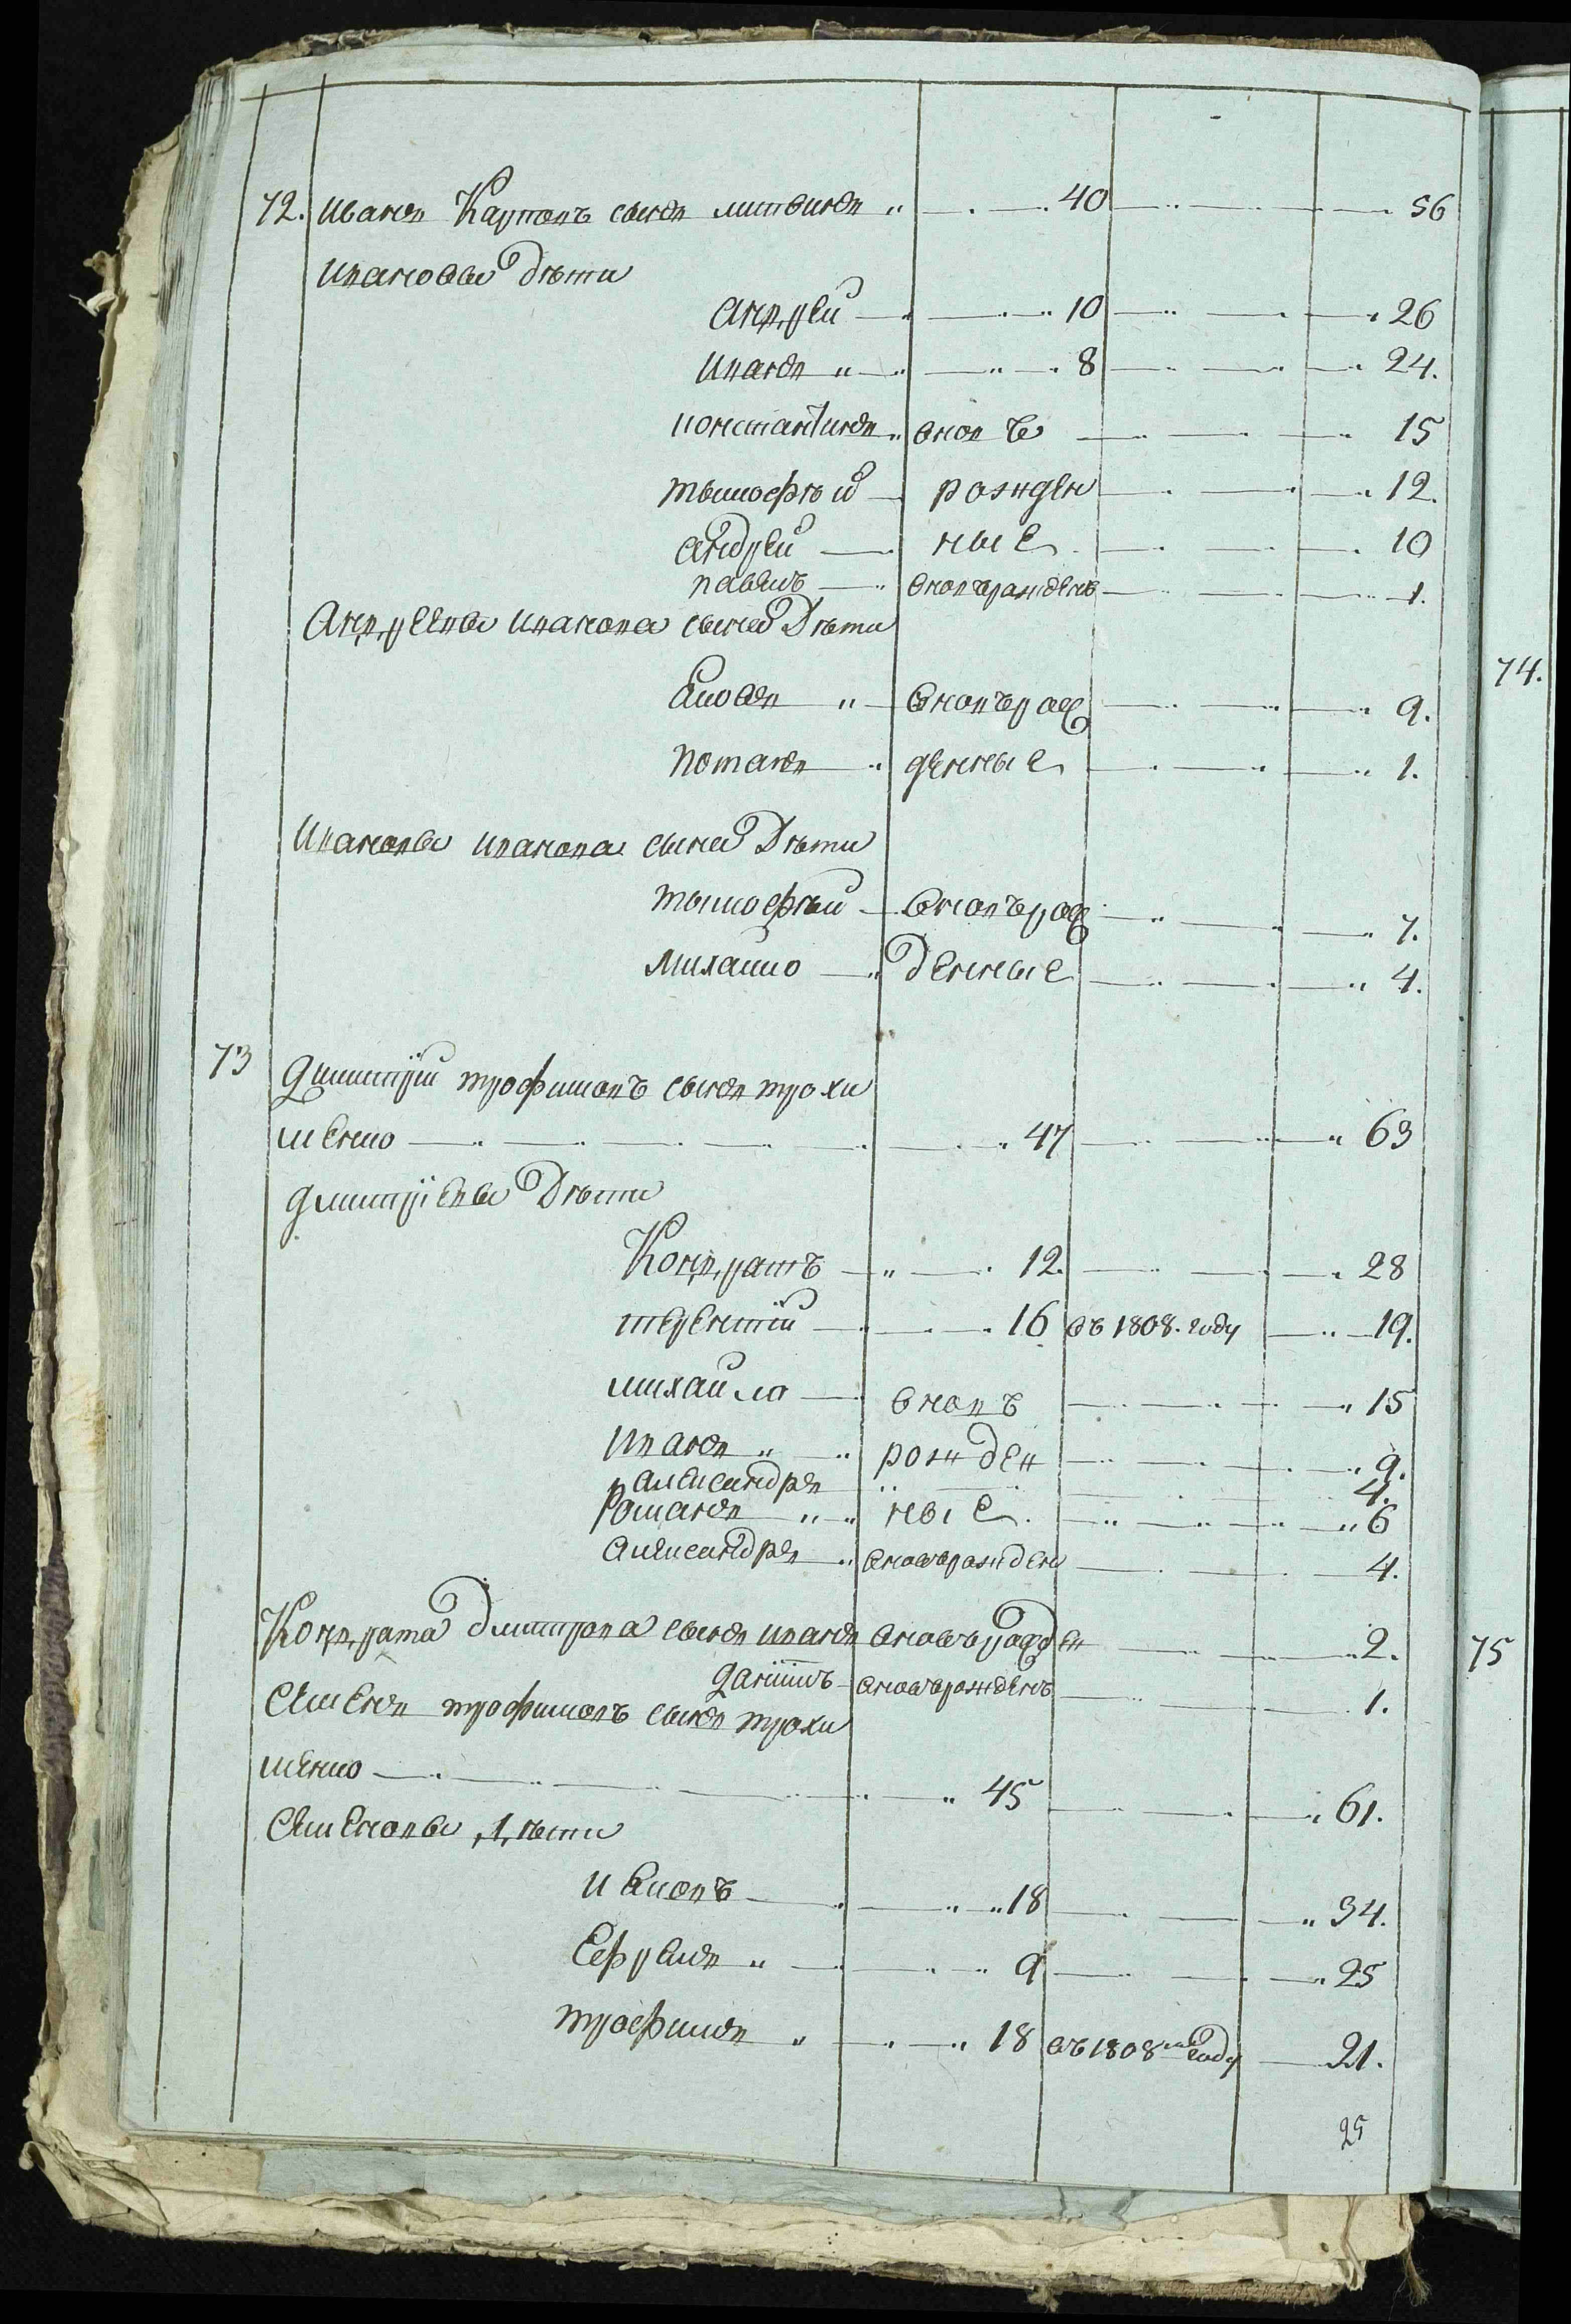 72. Иванъ Карповъ сынъ литвинъ 40 56
Ивановы дѣти
Андрей 10 26
Иванъ 8 24.
константинъ вновь 15
тымофѣй рожден 12.
андрей ные 10
павелъ вновьрожденъ 1.
Андреевы Иванова сына Дѣти
Яковъ вновьрож 9.
потапъ денные 1.
Ивановы Иванова сына Дѣти
тымофѣй вновърож 7.
михайло денные 4.
73 Дмитрій трофимовъ сынъ трохи
менко 47 63
дмитріевы Дѣти
Кондратъ 12. 28
терентій 16 въ 1808. году 19.
михайло вновъ 15
Иванъ рожден 9.
александръ 4.
Романъ ные 6
александръ вновьрожден 4.
Кондрата дмитрова сынъ иванъ вновърожден 2.
данiилъ вновърожденъ 1.
Семенъ трофимовъ сынъ трохи
менко 45 61.
Семеновы дѣти
Яковъ 18 34.
Ефремъ 9 25
трофимъ 18 въ 1808 году 21.
25
74.
75